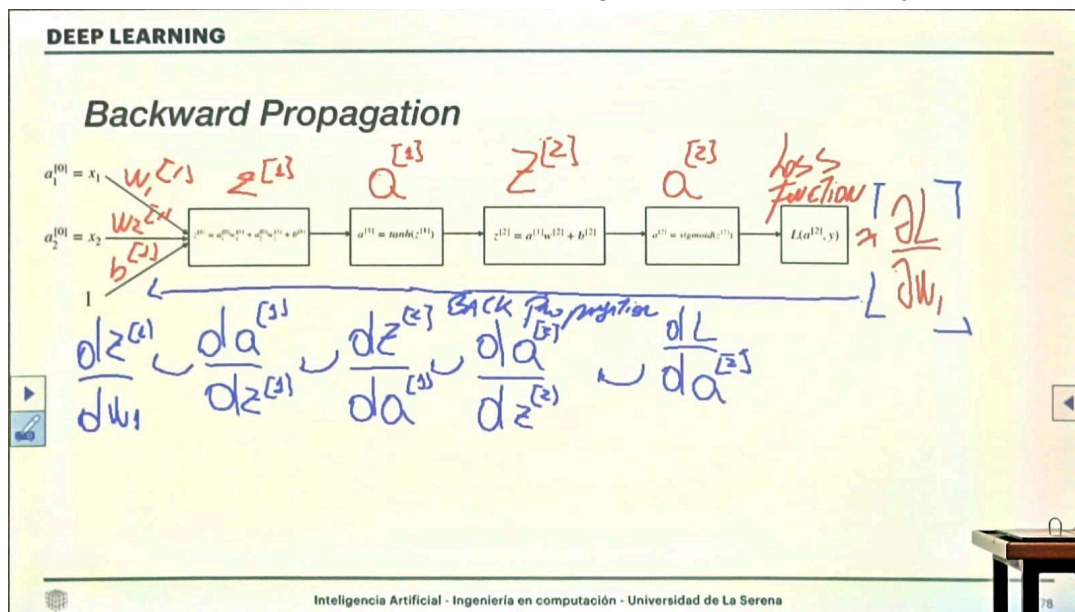 DEEP LEARNING
Backward Propagation
a_1^{[0]} = x_1
a_2^{[0]} = x_2
1
w_1^{[1]}
w_2^{[1]}
b^{[1]}
z^{[1]} a^{[1]} z^{[2]} a^{[2]} Loss
Function
a^{[1]} = tanh(z^{[1]})
z^{[2]} = a^{[1]}w^{[2]} + b^{[2]}
a^{[2]} = sigmoid(z^{[2]})
L(a^{[2]}, y)
∂L
∂w_1
BACK Propagation
dz^{[1]} da^{[1]} dz^{[2]} da^{[2]} dL
dw_1 dz^{[1]} da^{[1]} dz^{[2]} da^{[2]}
Inteligencia Artificial - Ingeniería en computación - Universidad de La Serena
78